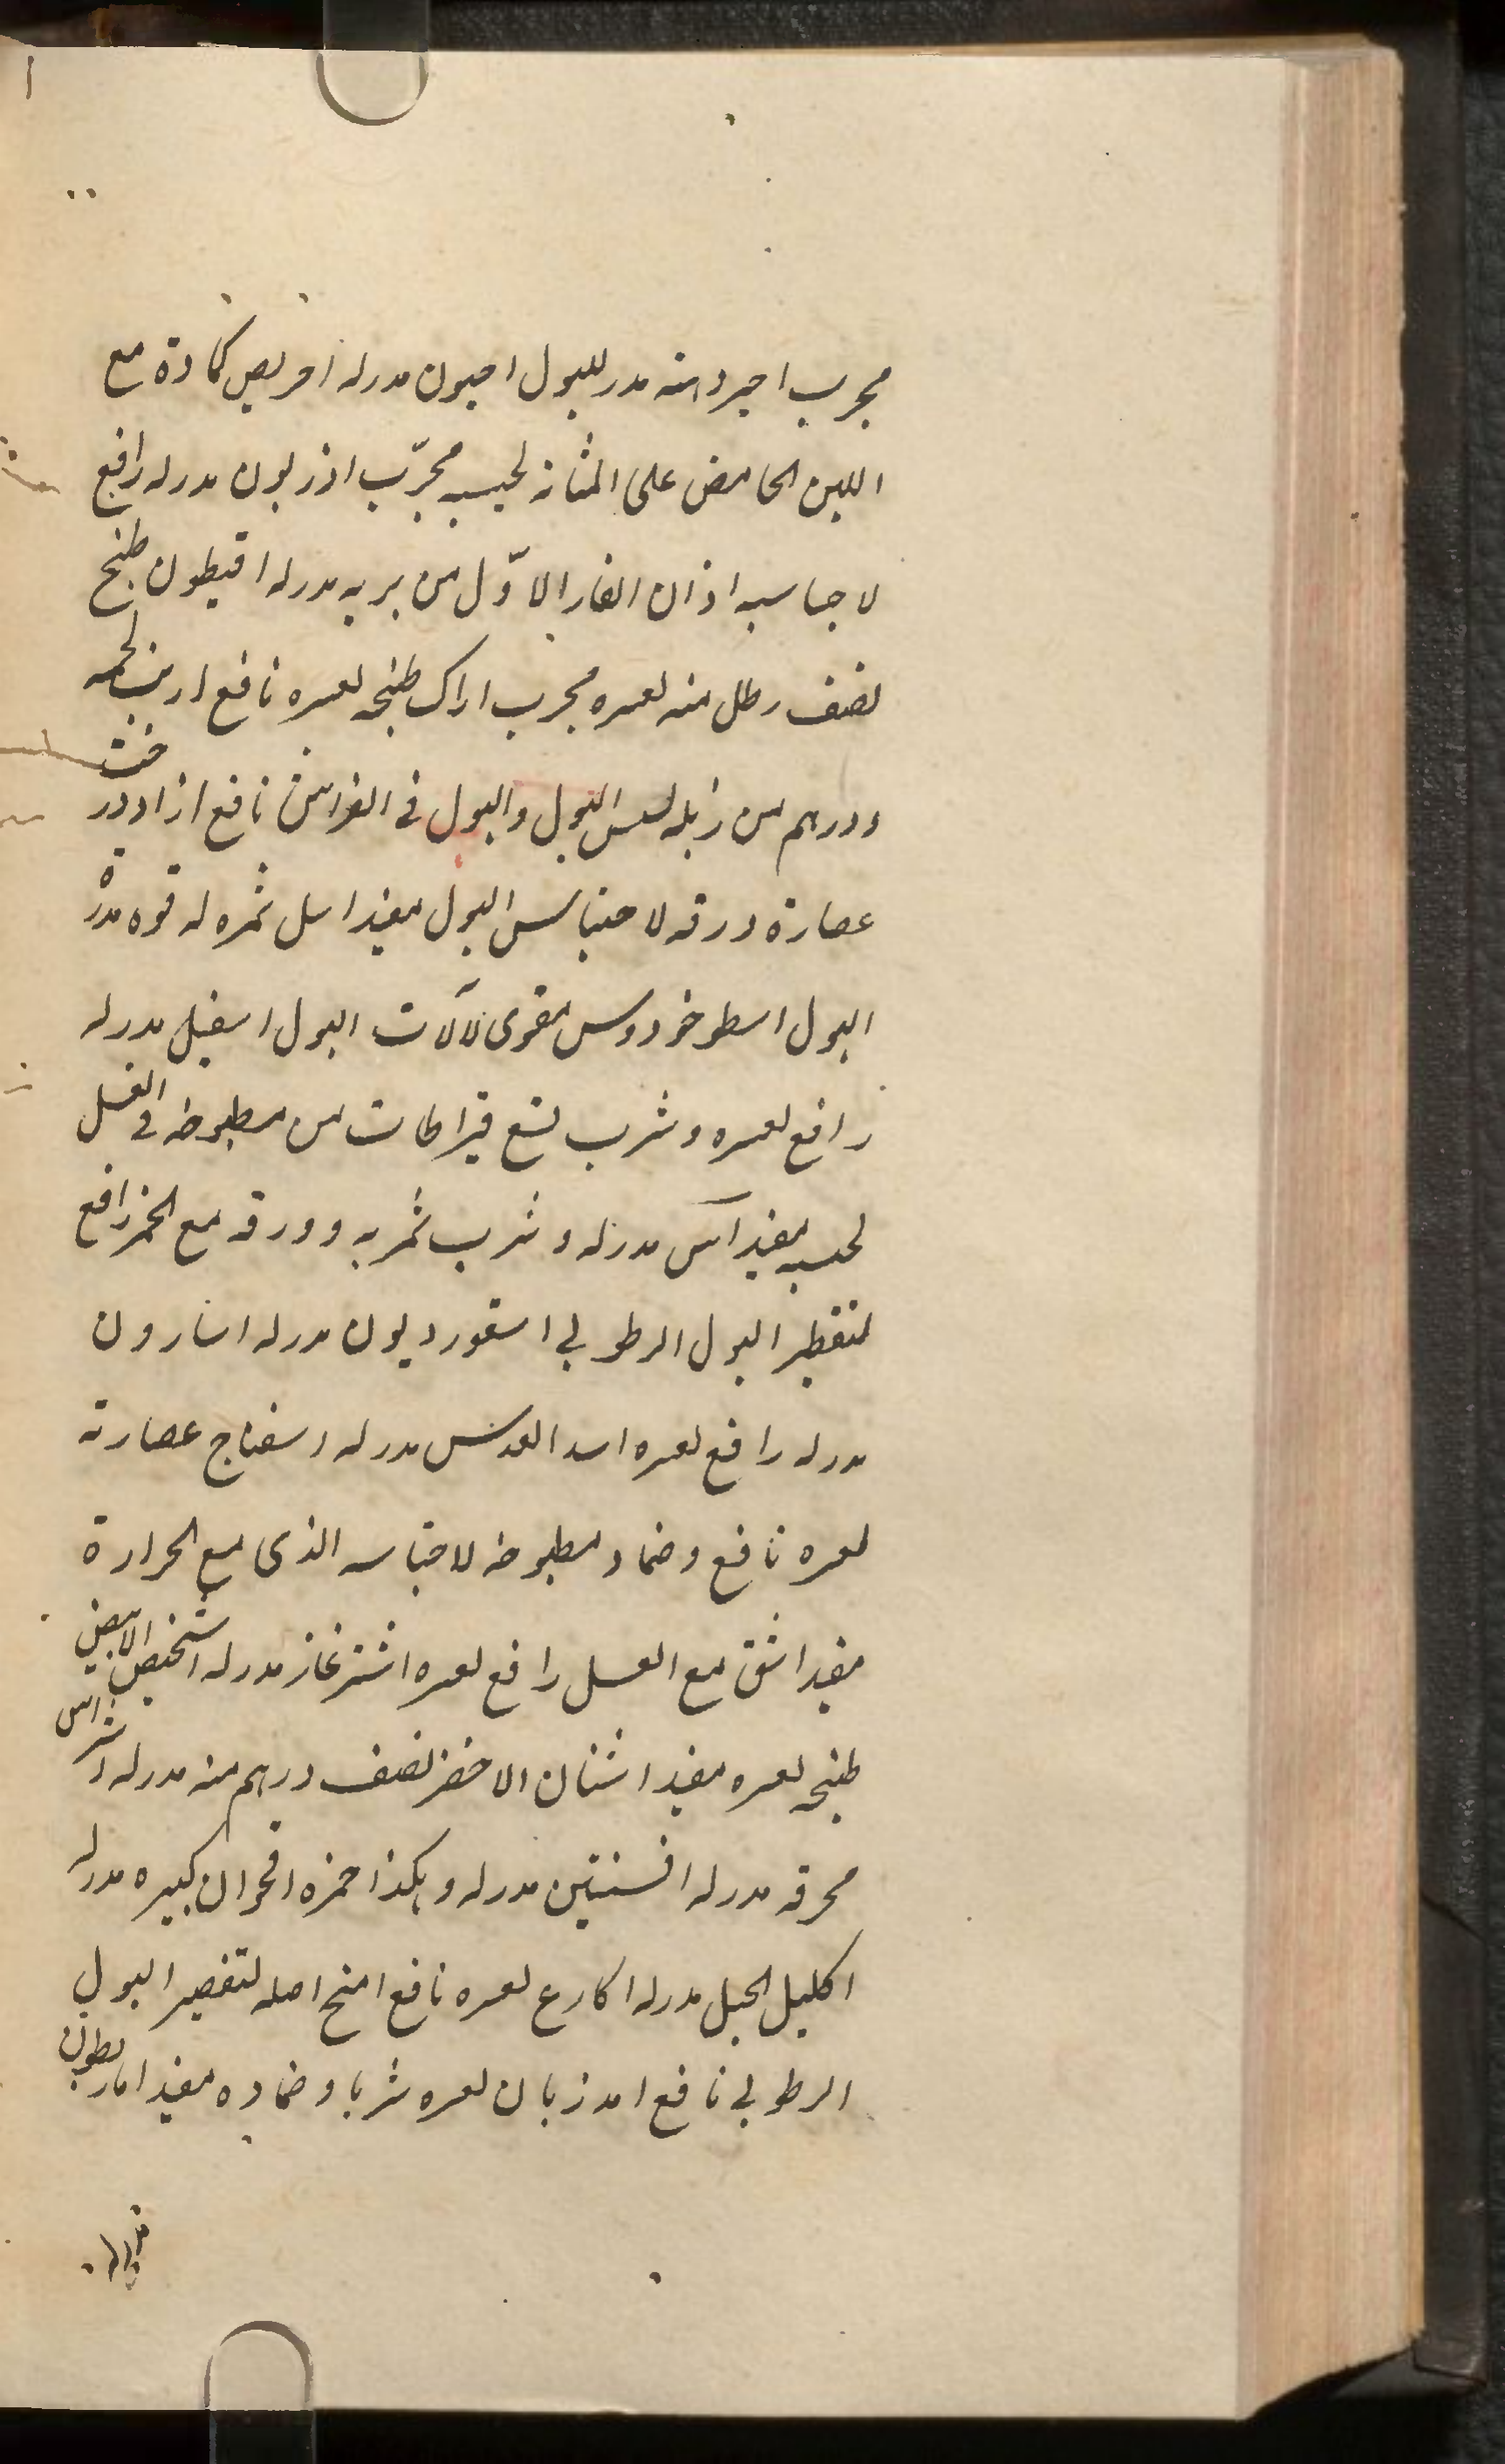 مجرب احيردامنه مدر للبول احيون مدر له احريص كمادة مع
اللبن الحامض على المثانة لحبسه مجرّب اذريون مدر له رافع
لاحتباسه اذان الفار الاوّل من بريه مدر له اقيطون طبخ
نصف رطل منه لعسره مجرب اراك طبخه لعسره نافع ارنب لحمه
ودرهم من زبله لسلس البول والبول فى الفراش نافع ازاددرخت
عصارة ورقه لاحتباس البول مفيد اسل ثمره له قوه مدرة
البول اسطوخودوس مقوى لآلات البول اسقيل مدر له
رافع لعسره وشرب تسع قيراطات من مطبوخه فى العسل
لحبسه مفيد آس مدر له وشرب ثمر به وورقه مع الخمر رافع
لتقطير البول الرطوبي اسقورديون مدر له اسارون
مدر له رافع لعسره اسد العدس مدر له اسفناج عصارته
لعسره نافع وضماد مطبوخه لاحتباسه الذى مع الحرارة
مفيد اشق مع العسل رافع لعسره اشترغاز مدر له اشخيص الابيض
طبخه لعسره مفيد اشنان الاخضر نصف درهم منه مدر له اشراس
محرقه مدر له افسنتين مدر له وهكذا خمره اقحوان كبيره مدر له
اكليل الجبل مدر له اكارع لعسره نافع امنح اصله لتقصير البول
الرطوبي نافع امدزيان لعسره شربا وضماده مفيد اماريطون